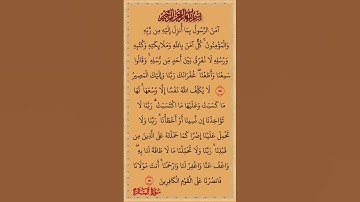 بسم الله الرحمن الرحيم
آمَنَ الرَّسُولُ بِمَا أُنزِلَ إِلَيْهِ مِن رَّبِّهِ
وَالْمُؤْمِنُونَ ۚ كُلٌّ آمَنَ بِاللَّهِ وَمَلَائِكَتِهِ وَكُتُبِهِ
وَرُسُلِهِ لَا نُفَرِّقُ بَيْنَ أَحَدٍ مِّن رُّسُلِهِ ۚ وَقَالُوا
سَمِعْنَا وَأَطَعْنَا ۖ غُفْرَانَكَ رَبَّنَا وَإِلَيْكَ الْمَصِيرُ
لَا يُكَلِّفُ اللَّهُ نَفْسًا إِلَّا وُسْعَهَا ۚ لَهَا
مَا كَسَبَتْ وَعَلَيْهَا مَا اكْتَسَبَتْ ۗ رَبَّنَا لَا
تُؤَاخِذْنَا إِن نَّسِينَا أَوْ أَخْطَأْنَا ۚ رَبَّنَا وَلَا
تَحْمِلْ عَلَيْنَا إِصْرًا كَمَا حَمَلْتَهُ عَلَى الَّذِينَ مِن
قَبْلِنَا ۚ رَبَّنَا وَلَا تُحَمِّلْنَا مَا لَا طَاقَةَ لَنَا بِهِ ۖ
وَاعْفُ عَنَّا وَاغْفِرْ لَنَا وَارْحَمْنَا ۚ أَنتَ مَوْلَانَا
فَانصُرْنَا عَلَى الْقَوْمِ الْكَافِرِينَ
سورة البقرة